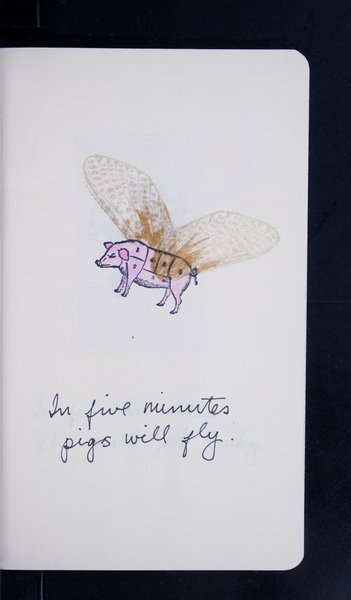 In five minutes
pigs will fly.